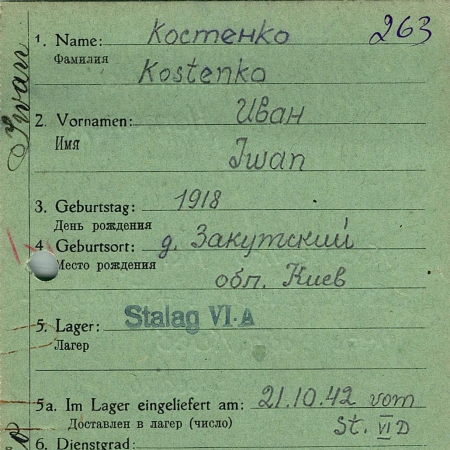 263
1. Name: Костенко
Фамилия
Kostenko
2. Vornamen: Иван
Имя
Iwan
3. Geburtstag: 1918
День рождения
4 Geburtsort: д. Закутский
Место рождения
обл. Киев
5. Lager: Stalag VI-A
Лагер
5a. Im Lager eingeliefert am: 21.10.42 vom
Доставлен в лагер (число) St. VI D
6. Dienstgrad:
Iwan